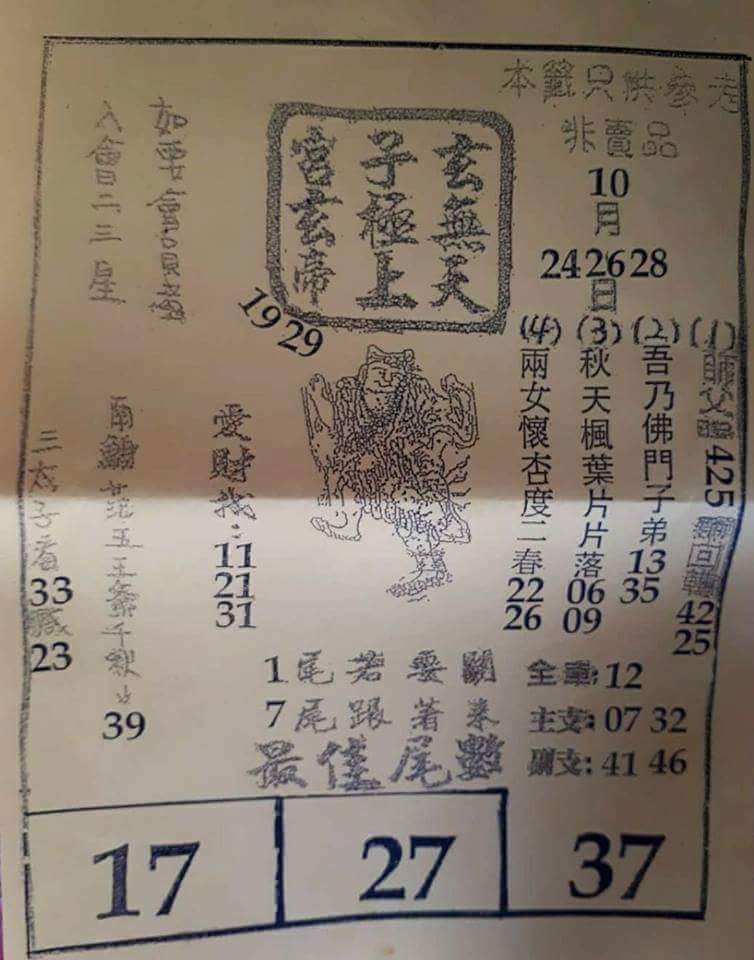 本籤只供參考
非賣品
10
月
24 26 28
日
玄無天
子極上
宮玄帝
19 29
如要會員
入會二三星
(1) 師父 425 回轉
42
25
(2) 吾乃佛門子弟
13
35
(3) 秋天楓葉片片落
06
09
(4) 兩女懷杏度二春
22
26
愛財找:
11
21
31
南鯤 五王爺千秋
39
三太子看
33
23
1尾若要開
7尾跟著來
最佳尾數
全章:12
主支:07 32
副支:41 46
17
27
37